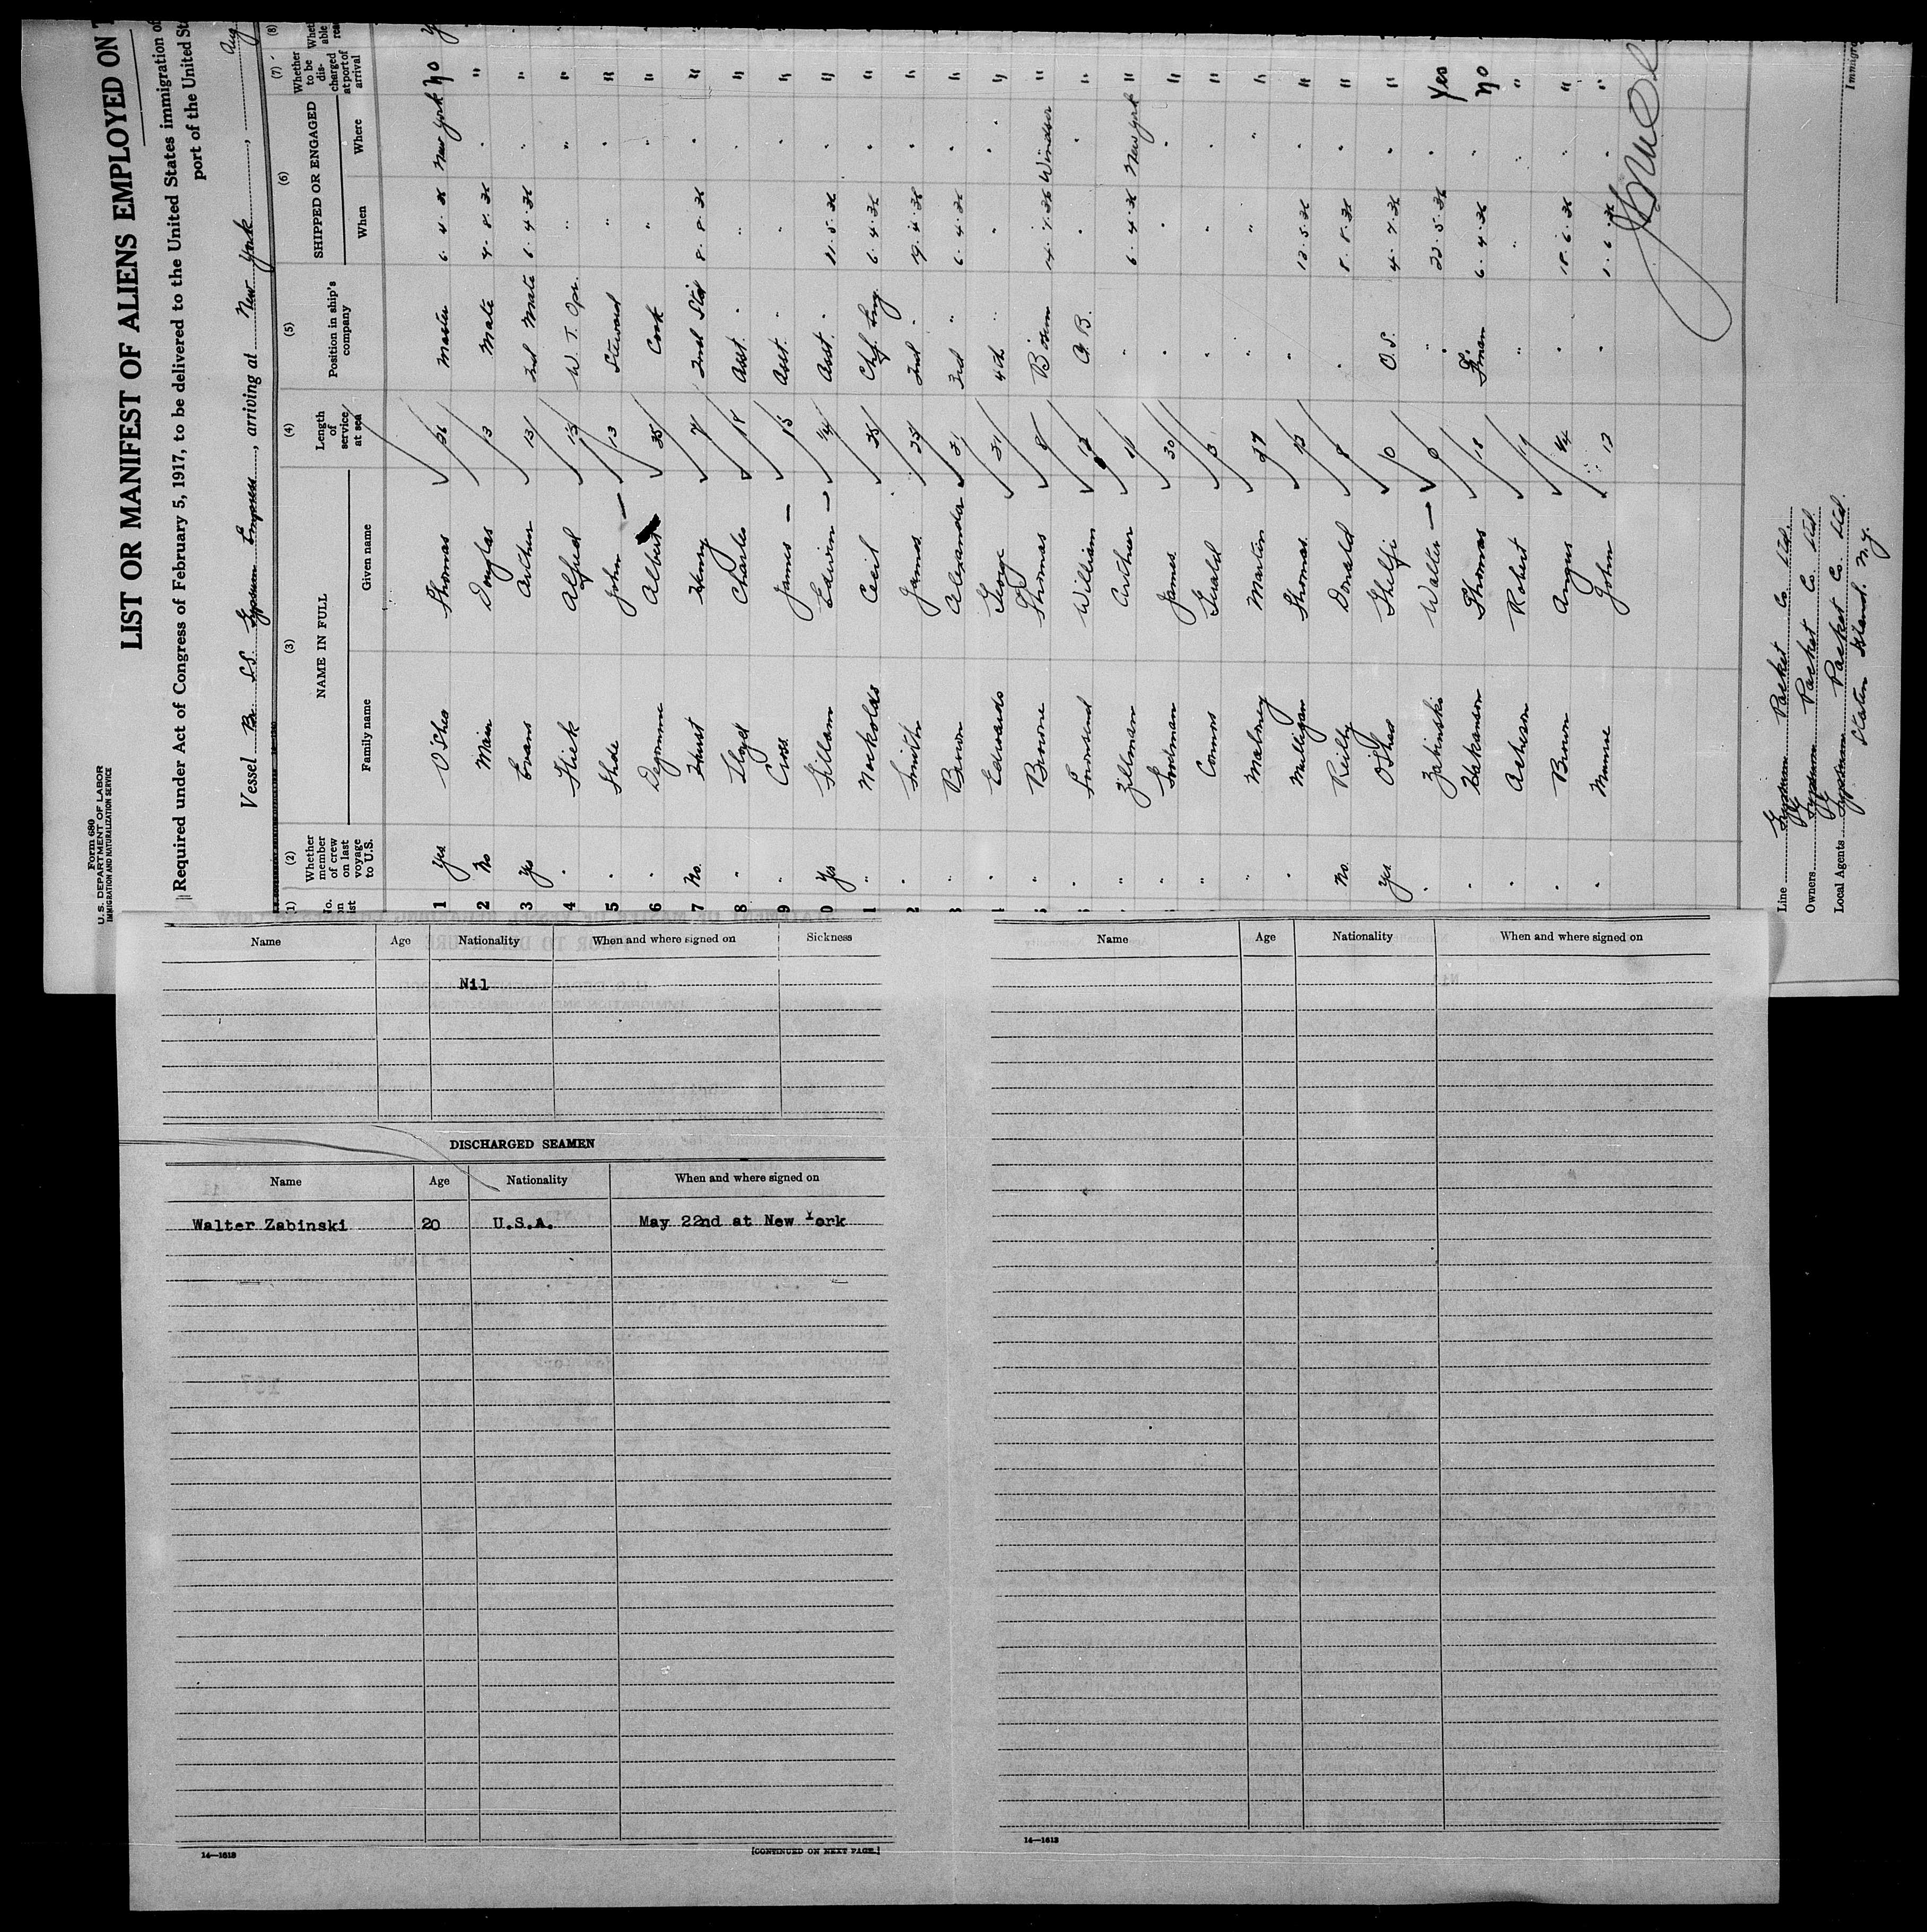 Form 680
U. S. DEPARTMENT OF LABOR
IMMIGRATION AND NATURALIZATION SERVICE
LIST OR MANIFEST OF ALIENS EMPLOYED ON T
Required under Act of Congress of February 5, 1917, to be delivered to the United States immigration of
port of the United St
Vessel Br. S.S. Gypsum Empress, arriving at New York, Aug
(1) (2) (3) (4) (5) (6) (7) (8)
No. on list Whether member of crew on last voyage to U.S. NAME IN FULL Length of service at sea Position in ship's company SHIPPED OR ENGAGED Whether to be discharged at port of arrival
Family name Given name When Where
1 Yes O'Shea Thomas 36 Master 6.4.36 New York No
2 No Main Douglas 13 Mate 4.8.36 " "
3 Yes Evans Arthur 13 2nd Mate 6.4.36 " "
4 " Alfred W. T. Opr. " " "
5 " John 13 Steward " " "
6 " Albert 35 Cook " " "
7 No. Hurst Henry 7 2nd Std 8.8.36 " "
8 " Lloyd Charles 18 Asst. " " " "
9 " Cross James 15 Asst. " " " "
0 Yes Gillam Edwin Asst. " 11.5.36 " "
1 " Nockolds Cecil 35 Chf. Eng. 6.4.36 " "
2 " Smith James 25 2nd " 19.4.36 " "
3 " Brown Alexander 31 3rd " 6.4.36 " "
4 " Edwards George 21 4th " " " "
5 " Browne Thomas 9 Bosun 14.7.36 Windsor "
6 " Townsend William 12 A.B. " " "
" Zillman Arthur " 6.4.36 New York "
" James 30 " " " "
" Connors Gerald 3 " " "
" Maloney Martin 27 " " " "
" Mulligan Thomas " 12.5.36 " "
No. Reilly Donald 8 " 8.8.36 " "
Yes. O'Shea 10 O.S. 4.7.36 " "
" Zabinski Walter 0 " 22.5.36 " Yes
" Hakanson Thomas 18 F'man 6.4.36 " No
" Acheson Robert 11 " " " "
" Brown Angus " 18.6.36 " "
" Munro John 12 " 1.6.36 " "
Line Gypsum Packet Co. Ltd.
Owners Gypsum Packet Co. Ltd.
Local Agents Gypsum Packet Co. Ltd.
Staten Island. N.Y.
Immigra
Name Age Nationality When and where signed on Sickness
Nil
DISCHARGED SEAMEN
Name Age Nationality When and where signed on
Walter Zabinski 20 U.S.A. May 22nd at New York
14—1613
[CONTINUED ON NEXT PAGE.]
Name Age Nationality When and where signed on
14—1613